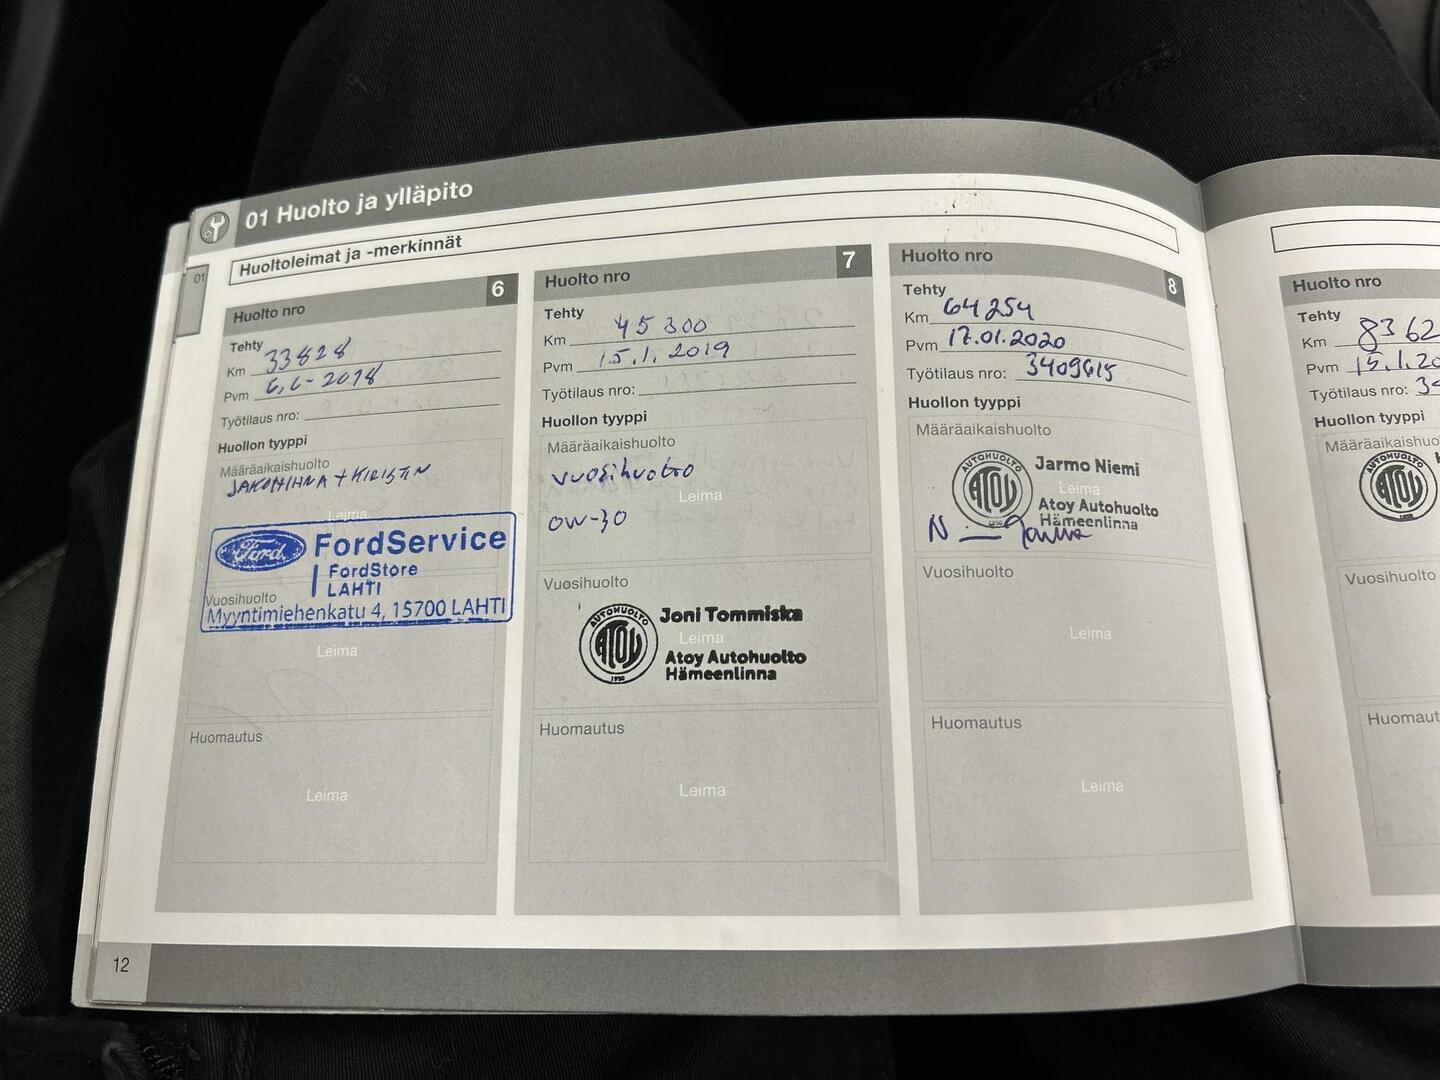 01 Huolto ja ylläpito
01
Huoltoleimat ja -merkinnät
Huolto nro 6
Tehty
Km 33828
Pvm 6.6-2018
Työtilaus nro:
Huollon tyyppi
Määräaikaishuolto
JAKOHIHNA + KIRISTIN
Leima
Ford
FordService
FordStore
LAHTI
Vuosihuolto
Myyntimiehenkatu 4, 15700 LAHTI
Leima
Huomautus
Leima
Huolto nro 7
Tehty
Km 45300
Pvm 15.1.2019
Työtilaus nro:
Huollon tyyppi
Määräaikaishuolto
vuosihuolto
Leima
0W-30
Vuosihuolto
AUTOHUOLTO
ATOY
1930
Joni Tommiska
Leima
Atoy Autohuolto
Hämeenlinna
Huomautus
Leima
Huolto nro 8
Tehty
Km 64254
Pvm 17.01.2020
Työtilaus nro: 3409615
Huollon tyyppi
Määräaikaishuolto
AUTOHUOLTO
ATOY
1930
Jarmo Niemi
Leima
Atoy Autohuolto
Hämeenlinna
Vuosihuolto
Leima
Huomautus
Leima
Huolto nro
Tehty
Km 8362
Pvm 15.1.20
Työtilaus nro: 34
Huollon tyyppi
Määräaikaishuo
AUTOHUOLTO
ATOY
1930
Vuosihuolto
Huomaut
12